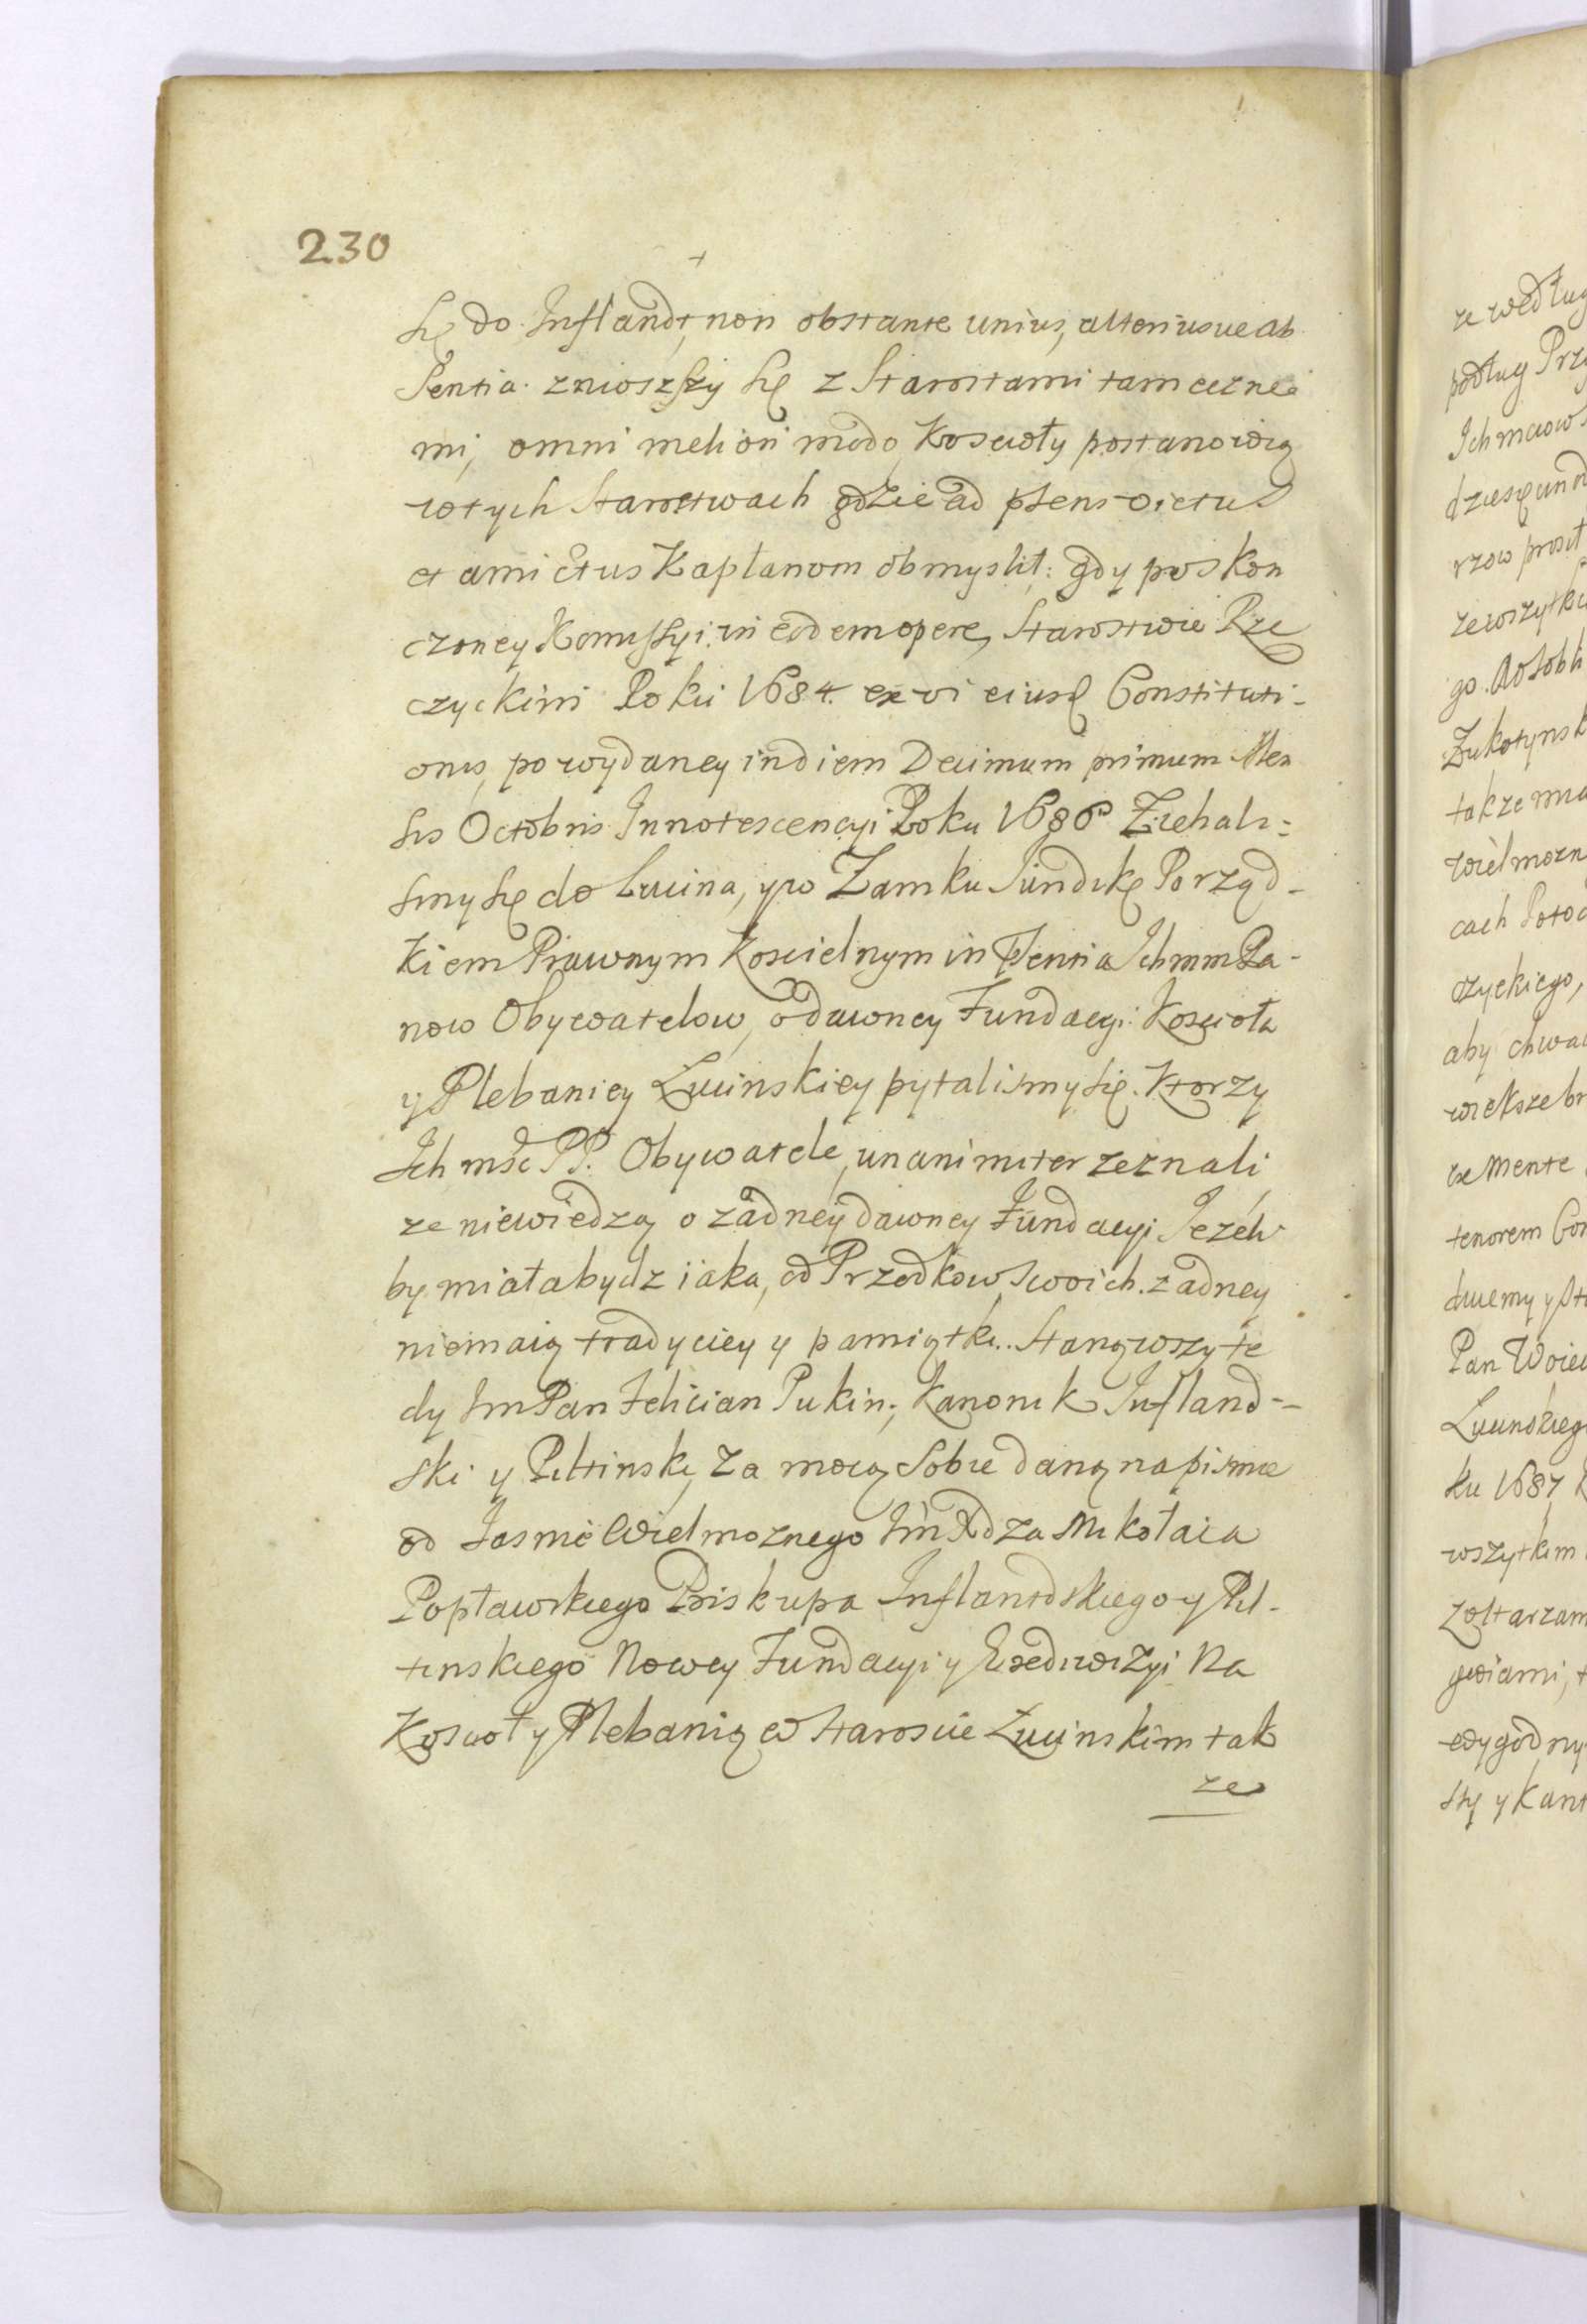 230
się do Inflandt, non obstante unius, alteriusve ab
sentia. zniozszy się z Starostami tameczne
mi, omni meliori modo, Koscioły postanowią
w tych Starostwach gdzie ad psens victus
et amictus Kapłanom obmyslił: gdy po skon
czoney Komissyi. in eodem opere, Starostwie Rze
czyckim Roku 1684. ex vi eiusd Constituti-
onis, po wydaney in diem Decimum primum Men
sis Octobris Innotescencyi Roku 1686 Ziehali=
smy się do Lucina, y w Zamku Iundikę Porząd-
kiem Prawnym Koscielnym in Psentia Ichmm Pa-
now Obywatelow, o dawney Fundacyi Koscioła
y Plebaniey Lucinskiey pytalismy się. Ktorzy
Ich mśc PP. Obywatele, unanimiter zeznali
ze niewiedzą o żadney dawney Fundacyi Jeżeli
by miała bydz iaka, od Przodkow swoich. zadney
niemaią tradyciey y pamiątki.. Stanąwszy te
dy Im Pan Felician Pukin, Kanonik Infland-
ski y Piltinski, Za mocą Sobie daną na pismie
od Jasnie Wielmoznego Im Xdza Mikołaia
Popławskiego Biskupa Inflantdskiego y Pil-
tinskiego Nowey Fundacyi y Erediwizyi Na
Koscioł y Plebanią w Staroscie Lucinskim tak
ze
ze według
podług Prz
Ichmciow
rzow prosił
zewszytki
go.
także
wielmozn
cach
czyckiego,
aby chwa
wieksze
ex Mente
tenorem Con
Pan Woiew
Lucinskieg
ku 1687
wszytkim
sty y Kant